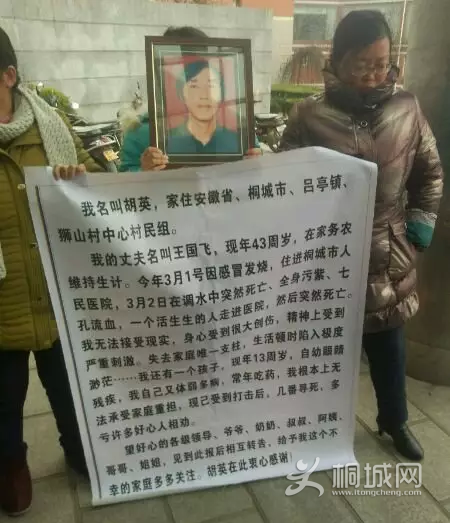 我名叫胡英，家住安徽省、桐城市、吕亭镇、
狮山村中心村民组。
我的丈夫名叫王国飞，现年43周岁，在家务农
维持生计。今年3月1号因感冒发烧，住进桐城市人
民医院，3月2日在调水中突然死亡、全身污紫、七
孔流血，一个活生生的人走进医院，然后突然死亡。
我无法接受现实，身心受到很大创伤，精神上受到
严重刺激。失去家庭唯一支柱，生活顿时陷入极度
渺茫……我还有一个孩子，现年13周岁，自幼眼睛
残疾，我自己又体弱多病，常年吃药，我根本上无
法承受家庭重担，现已受到打击后，几番寻死，多
亏许多好心人相劝。
望好心的各级领导、爷爷、奶奶、叔叔、阿姨、
哥哥、姐姐，见到此报后相互转告，给予我这个不
幸的家庭多多关注。胡英在此衷心感谢！
桐城网
www.itongcheng.com